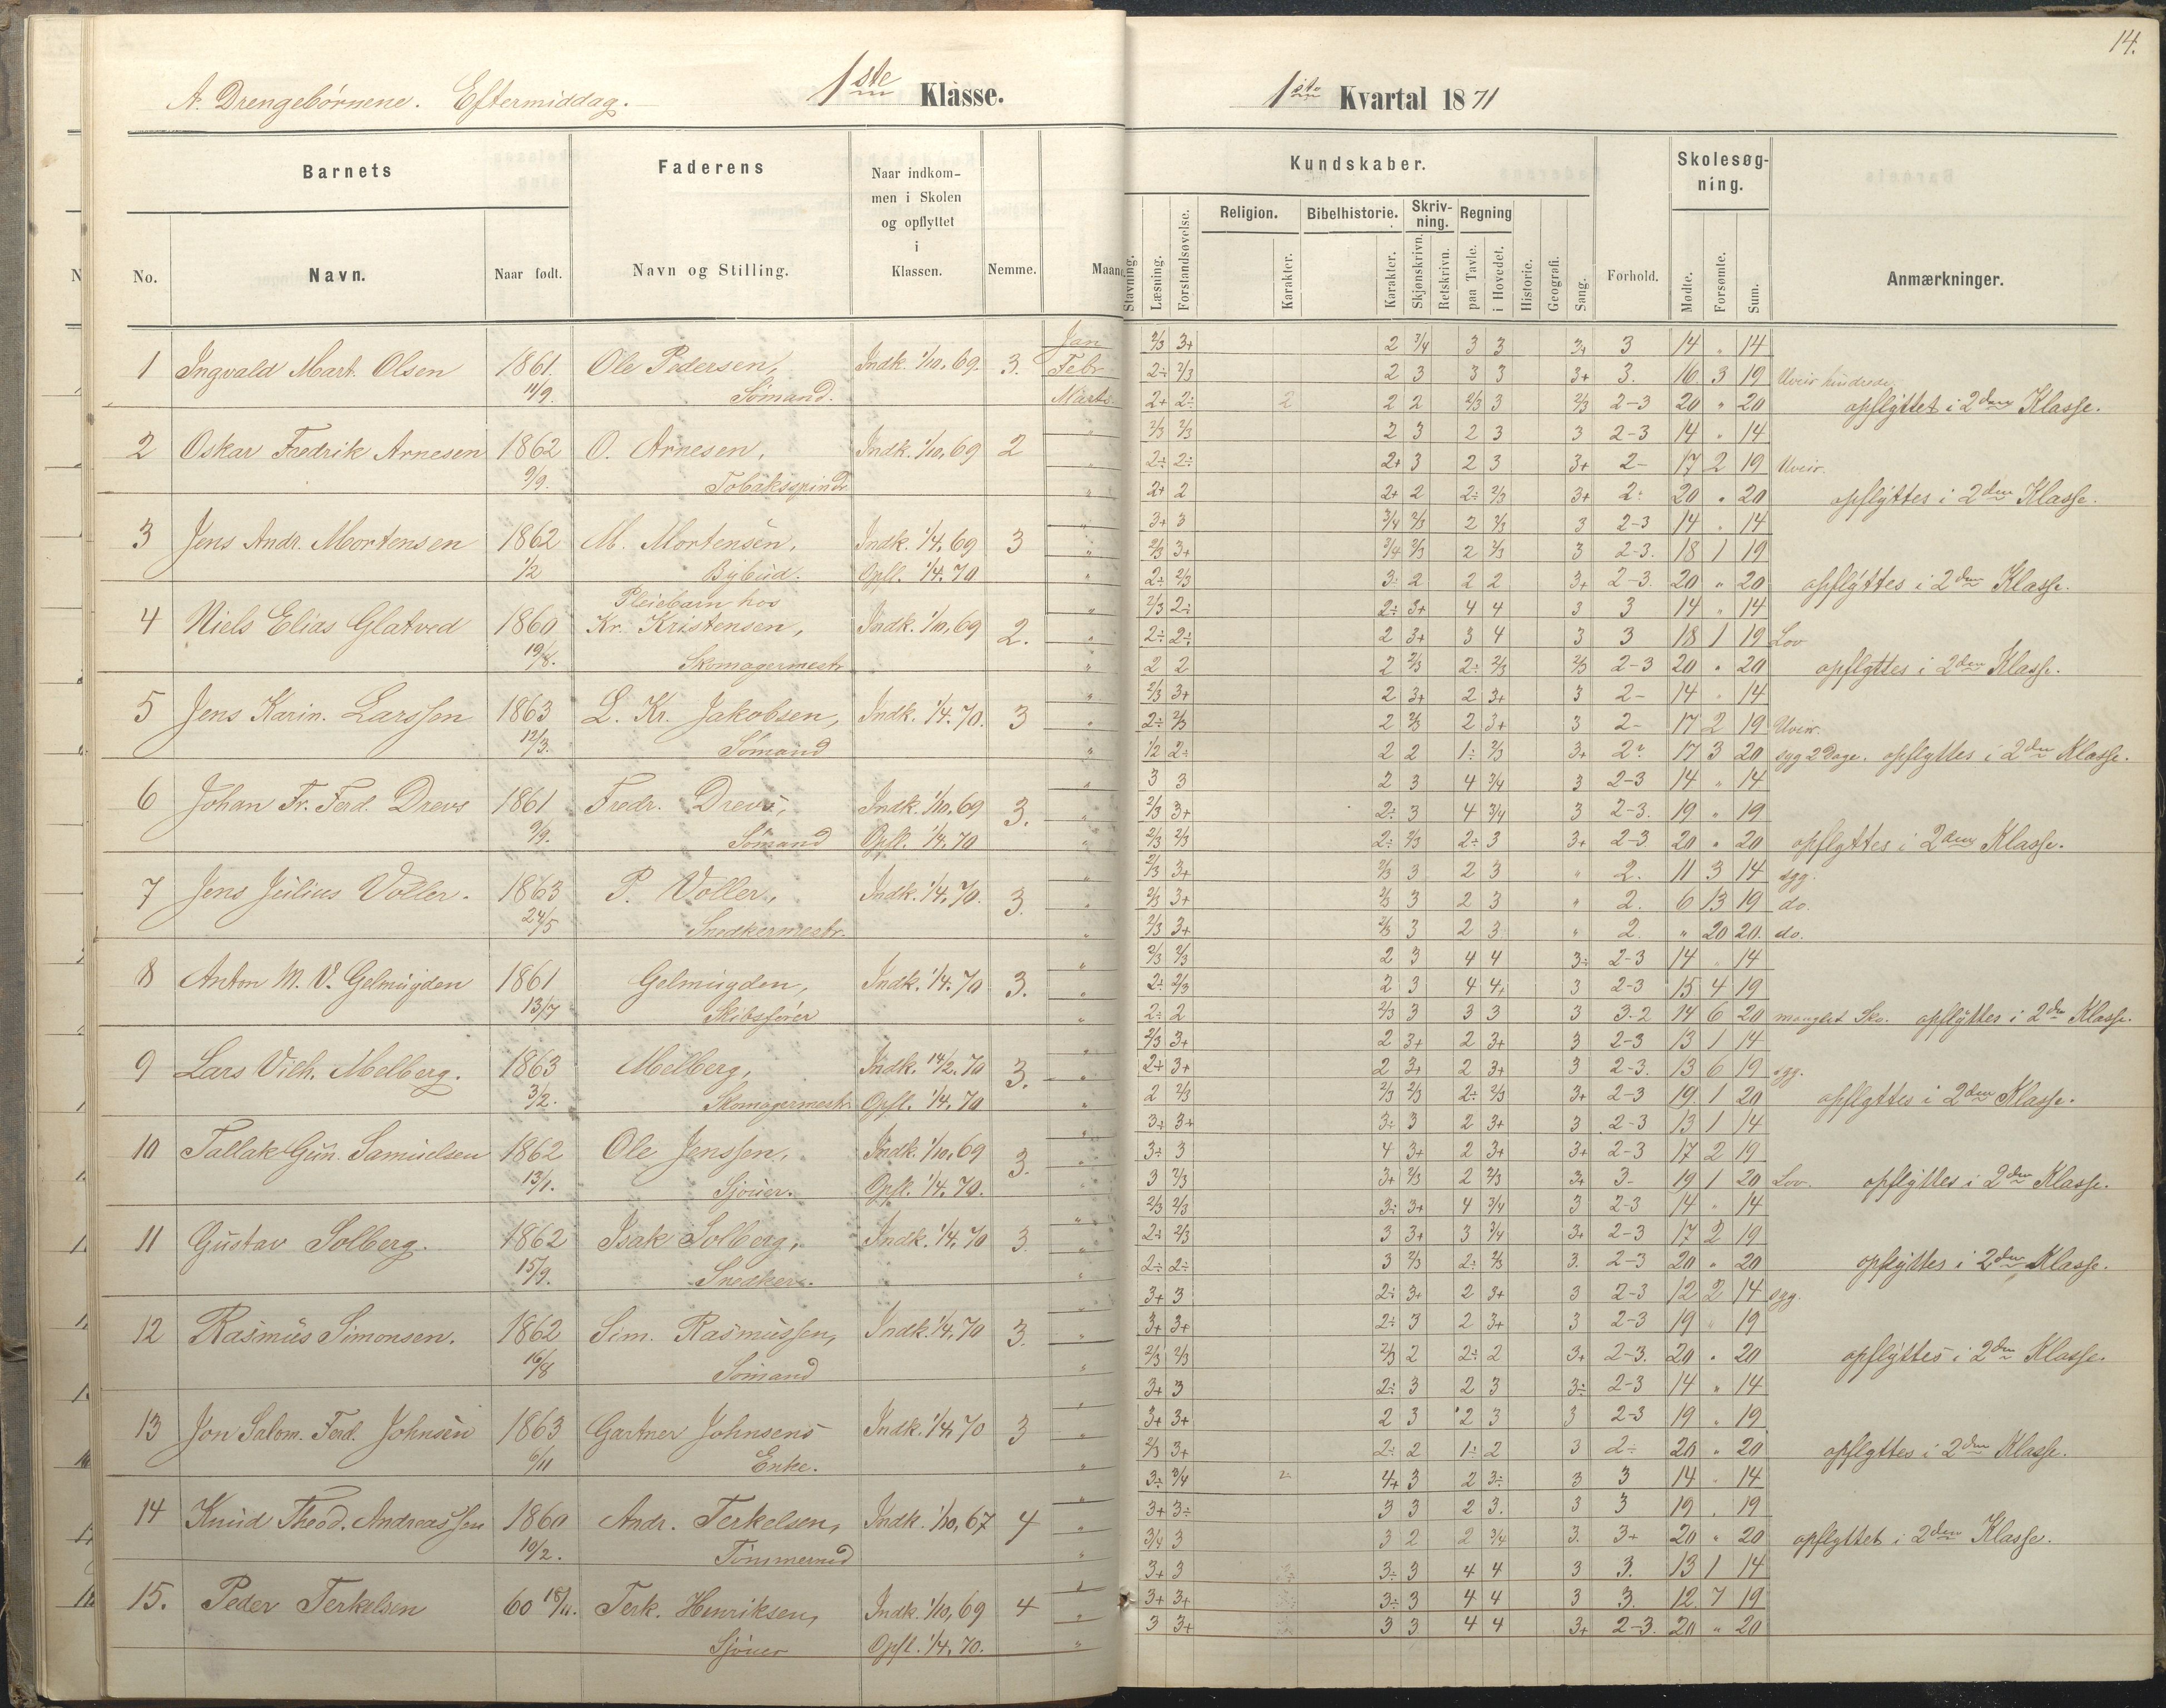 14.
A. Drengebørnene. Eftermiddag. 1ste Klasse.
1ste Kvartal 1871
Barnets
Faderens
Naar indkom-
men i Skolen
og opflyttet
i
Klassen.
No.
Navn.
Naar født.
Navn og Stilling.
Nemme.
Maan
Kundskaber.
Skolesøg-
ning.
Stavning.
Læsning.
Forstandsøvelse.
Religion.
Karakter.
Bibelhistorie.
Karakter.
Skriv-
ning.
Skjønskrivn.
Retskrivn.
Regning
paa Tavle.
i Hovedet.
Historie.
Geografi.
Sang.
Forhold.
Mødte.
Forsømte.
Sum.
Anmærkninger.
Jan 2/3 3+ 2 3/4 3 3 3+ 3 14 " 14
1 Ingvald Mart. Olsen 1861. Ole Pedersen, Indk. 1/10, 69. 3. Febr 2÷ 2/3 2 3 3 3 3+ 3. 16 3 19 Uveir hindrede
11/9. Sömand. Marts 2+ 2÷ 2 2 2 2/3 3 2/3 2-3 20 " 20 opflyttet i 2den Klasse.
" 2/3 2/3 2 3 2 3 3 2-3 14 " 14
2 Oskar Fredrik Arnesen 1862 O. Arnesen, Indk. 1/10, 69 2 " 2÷ 2÷ 2+ 3 2 3 3+ 2- 17 2 19 Uveir.
9/9. Tobaksspindr " 2+ 2 2+ 2 2÷ 2/3 3+ 2÷ 20 " 20 opflyttes i 2den Klasse.
" 3+ 3 3/4 2/3 2 2/3 3 2-3 14 " 14
3 Jens Andr. Mortensen 1862 M. Mortensen, Indk. 1/4, 69 3 " 2/3 3+ 3/4 2/3 2 2/3 3 2-3. 18 1 19
1/2 Bybud. Opfl. 1/4. 70 " 2÷ 2/3 3÷ 2 2 2 3+ 2-3. 20 " 20 opflyttes i 2den Klasse.
Pleiebarn hos " 2/3 2÷ 2÷ 3+ 4 4 3 3 14 " 14
4 Niels Elias Glatved 1860 Kr. Kristensen, Indk. 1/10, 69 2. " 2÷ 2÷ 2 3+ 3 4 3 3 18 1 19 Lov
19/8. Skomagermestr " 2 2 2 2/3 2÷ 2/3 2/3 2-3 20 " 20 opflyttes i 2den Klasse.
" 2/3 3+ 2 3+ 2 3+ 3 2- 14 " 14
5 Jens Karin. Larssen 1863 L. Kr. Jakobsen, Indk. 1/4. 70. 3 " 2÷ 2/3 2 2/3 2 3+ 3 2- 17 2 19 Uveir.
12/3. Sömand " 1/2 2÷ 2 2 1÷ 2/3 3+ 2÷ 17 3 20 syg 2 Dage. opflyttes i 2den Klasse.
" 3 3 2 3 4 3/4 3 2-3 14 " 14
6 Johan Fr. Ferd. Drevs 1861 Fredr. Drevs, Indk. 1/10, 69 3. " 2/3 3+ 2÷ 3 4 3/4 3 2-3. 19 " 19
9/9. Sömand Opfl. 1/4. 70 " 2/3 2/3 2÷ 2/3 2÷ 3 3+ 2-3 20 " 20 opflyttes i 2den Klasse.
" 2/3 3+ 2/3 3 2 3 " 2. 11 3 14 syg.
7 Jens Julius Voller. 1863 P. Voller, Indk. 1/4. 70. 3. " 2/3 3+ 2/3 3 2 3 " 2. 6 13 19 do.
24/5 Snedkermestr. " 2/3 3+ 2/3 3 2 3 " 2. " 20 20. do.
" 2/3 2/3 2 3 4 4 3÷ 2-3 14 " 14
8 Anton M. V. Gelmuyden 1861 Gelmuyden, Indk. 1/4. 70 3. " 2÷ 2/3 2 3 4 4+ 3 2-3 15 4 19
13/7 Skibsfører " 2÷ 2 2/3 3 3 3 3 3-2 14 6 20 manglet Sko. opflyttes i 2den Klasse.
" 2/3 3+ 2 3+ 2 3+ 3 2-3 13 1 14
9 Lars Vilh. Melberg. 1863 Melberg, Indk. 14/2. 70 3. " 2÷ 3+ 2 3+ 2 3+ 3 2-3. 13 6 19 syg.
3/2. Skomagermestr. Opfl. 1/4. 70 " 2 2/3 2/3 2/3 2÷ 2/3 3+ 2-3 19. 1 20 opflyttes i 2den Klasse.
" 3÷ 3+ 3÷ 3 2 3+ 3 2-3 13 1 14
10 Tallak Gun. Samuelsen 1862 Ole Jenssen, Indk. 1/10, 69 3. " 3÷ 3 4 3+ 2 3+ 3+ 2-3 17 2 19
13/1. Sjouer. Opfl. 1/4. 70. " 3 2/3 3+ 2/3 2 2/3 3+ 3- 19 1 20 Lov. opflyttes i 2den Klasse.
" 2/3 2/3 3÷ 3+ 4 3/4 3 2-3 14 " 14
11 Gustav Solberg. 1862 Isak Solberg, Indk. 1/4, 70 3. " 2÷ 2/3 3 3+ 3 3/4 3+ 2-3 17 2 19
15/9. Snedker. " 2÷ 2÷ 3 2/3 2÷ 2/3 3. 2-3 20 " 20 opflyttes i 2den Klasse.
" 3+ 3 2÷ 3+ 2 3+ 3 2-3 12 2 14 syg.
12 Rasmus Simonsen. 1862 Sim. Rasmussen, Indk. 1/4, 70 3. " 3+ 3+ 2÷ 3 2 3+ 3 2-3 19 " 19
16/8 Sömand " 2/3 2/3 2/3 2 2÷ 2 3+ 2-3. 20 " 20 opflyttes i 2den Klasse.
" 3+ 3 2÷ 3 2 3 3÷ 2-3 14 " 14
13 Jon Salom. Ferd. Johnsen 1863 Gartner Johnsens Indk. 1/4, 70 3 " 3+ 3+ 2 3 2 3 3 2-3 19 " 19
6/11 Enke. " 2/3 3+ 2÷ 2 1÷ 2 3 2÷ 20 " 20 opflyttes i 2den Klasse.
" 3÷ 3/4 2 4+ 3 2 3÷ 3 3 14 " 14
14 Knud Theod. Andreassen 1860 Andr. Terkelsen, Indk. 1/10, 67 4 " 3+ 3÷ 3 3 2 3. 3 3 19 " 19
10/2. Tömmermd " 3/4 3 3 2 2 3/4 3. 3+ 20 " 20 opflyttet i 2den Klasse.
" 3+ 3 3÷ 3 4 4 3 3. 13 1 14
15. Peder Terkelsen 60 18/11. Terk. Henriksen, Indk. 1/10, 69 4 " 3+ 3+ 3÷ 3 4 4 3 3. 12. 7 19
Sjouer Opfl. 1/4, 70. " 3 3+ 3 3 4 4 3+ 2-3. 20 " 20